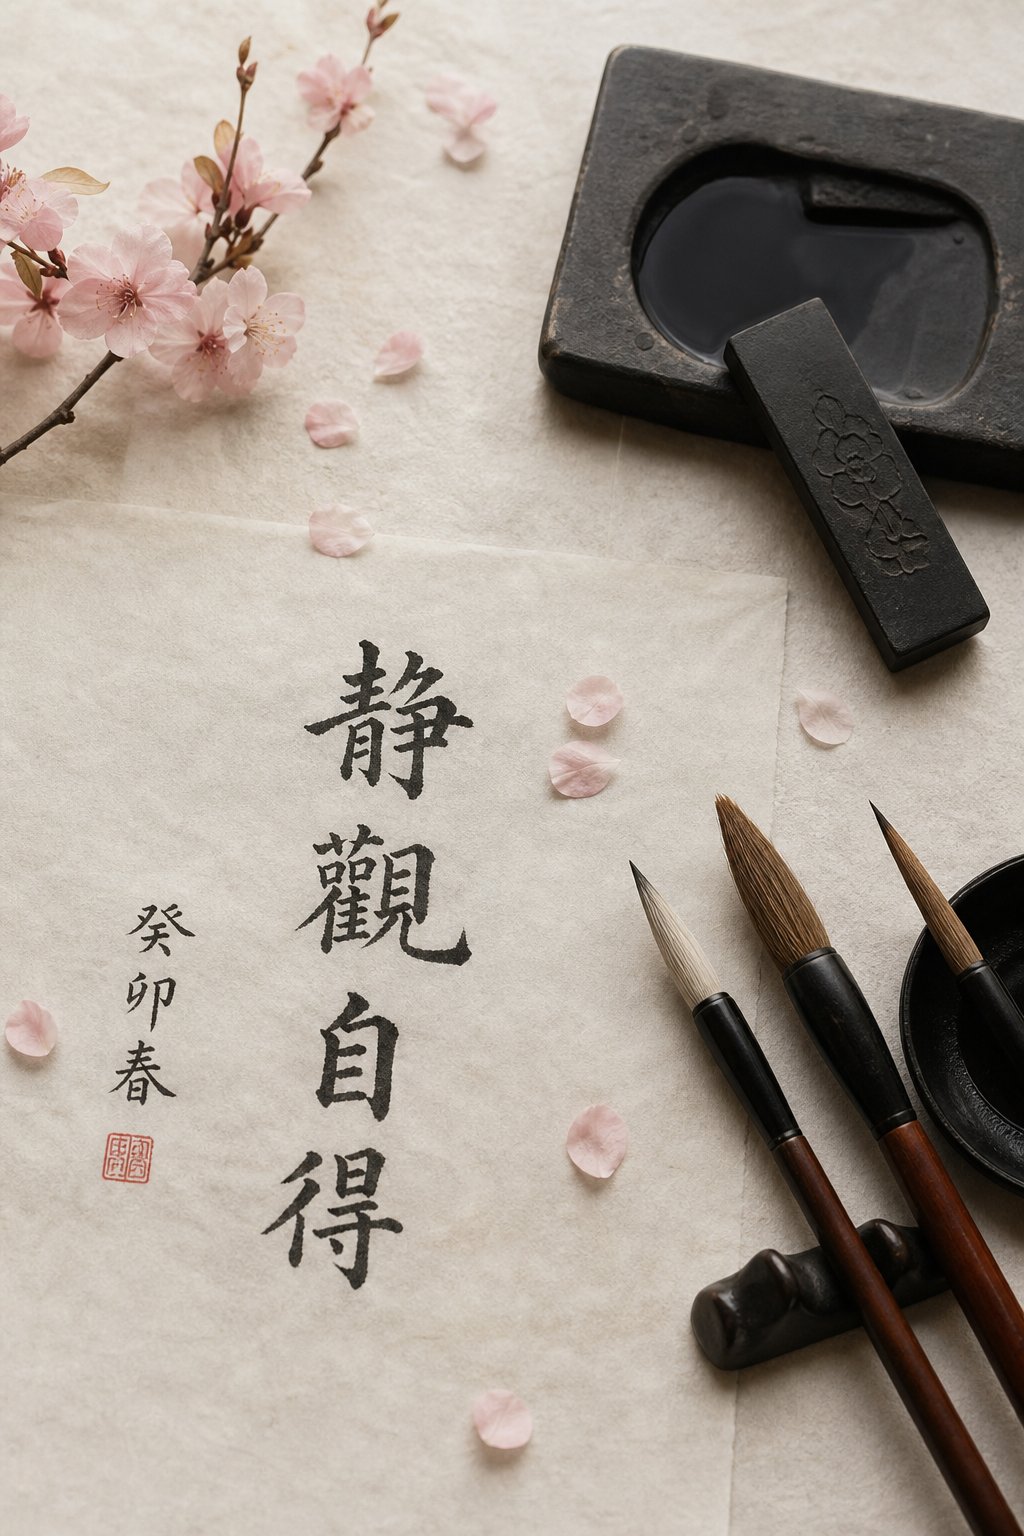 静觀自得
癸卯春